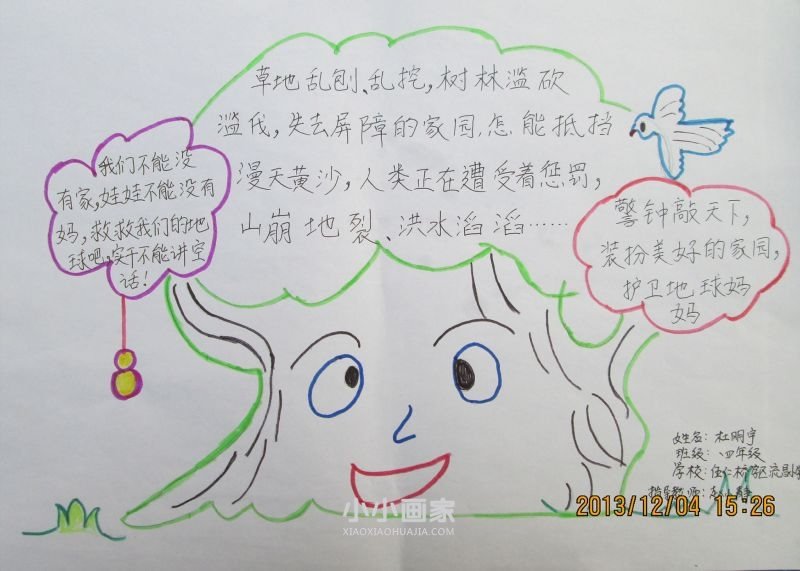 草地乱刨、乱挖,树林滥砍
滥伐,失去屏障的家园,怎能抵挡
漫天黄沙,人类正在遭受着惩罚,
山崩地裂、洪水滔滔……
我们不能没
有家,娃娃不能没有
妈,救救我们的地
球吧,实干不能讲空
话!
警钟敲天下,
装扮美好的家园,
护卫地球妈
妈
姓名:杜明宇
班级:四年级
学校:伍仁桥学区
指导教师:
小小画家
XIAOXIAOHUAJIA.COM
2013/12/04 15:26